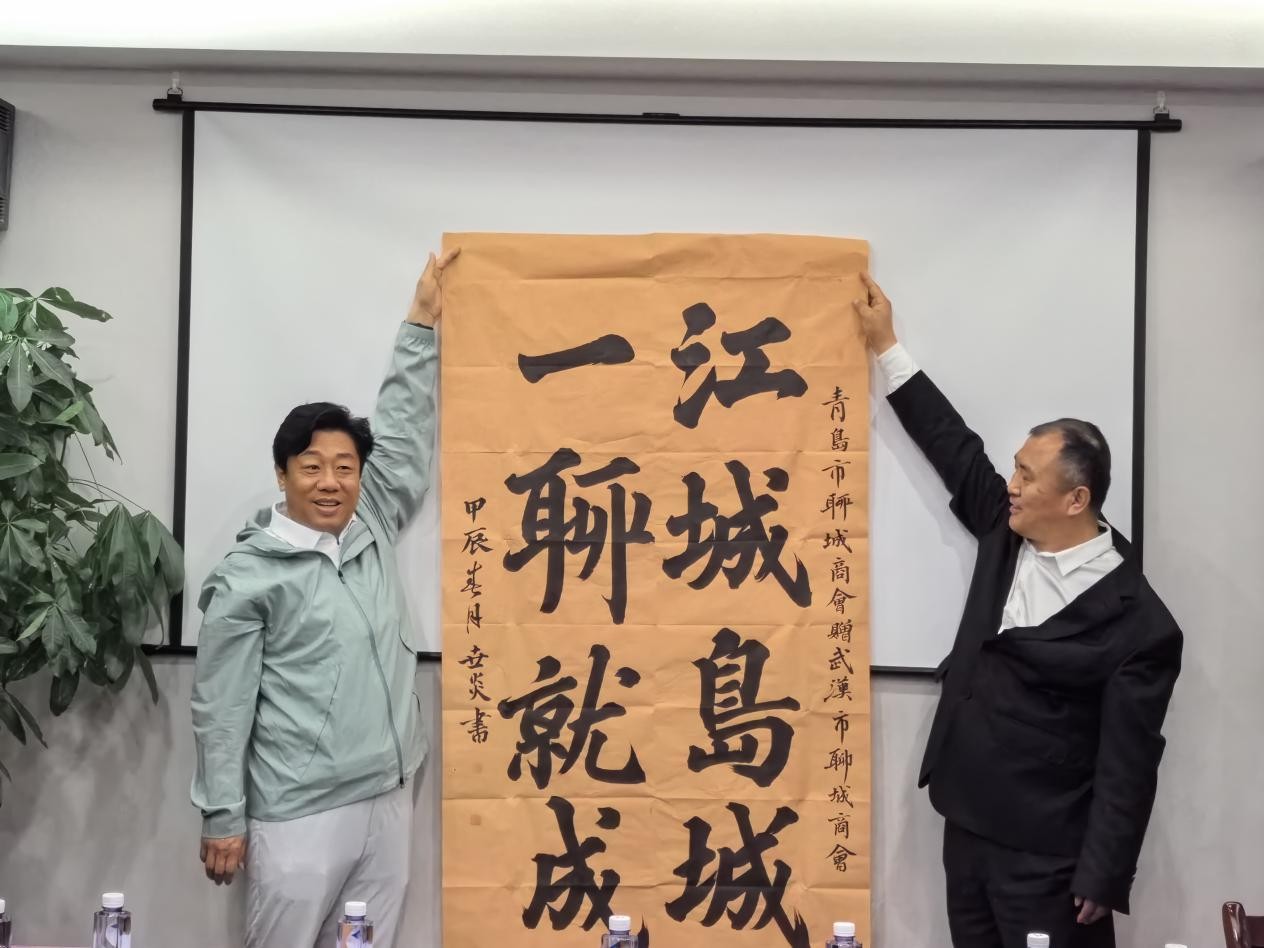 青島市聊城商會贈武漢市聊城商會
江城島城
一聊就成
甲辰春月世炎書